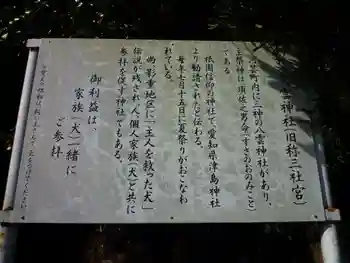 雲神社（旧称三社宮）
町内に三神の八雲神社があり、
主祭神は須佐之男命（すさのおのみこと）
である
祇園信仰の神社で、愛知県津島神社
より勧請されたと伝わる。
毎年七月十五日に夏祭りがおこなわ
れている。
尚、影重地区に「主人を救った犬」
伝説が残され、人、個人家族（犬）と共に
参拝を促す神社でもある。
御利益は、
家族（犬）一緒に
ご参拝